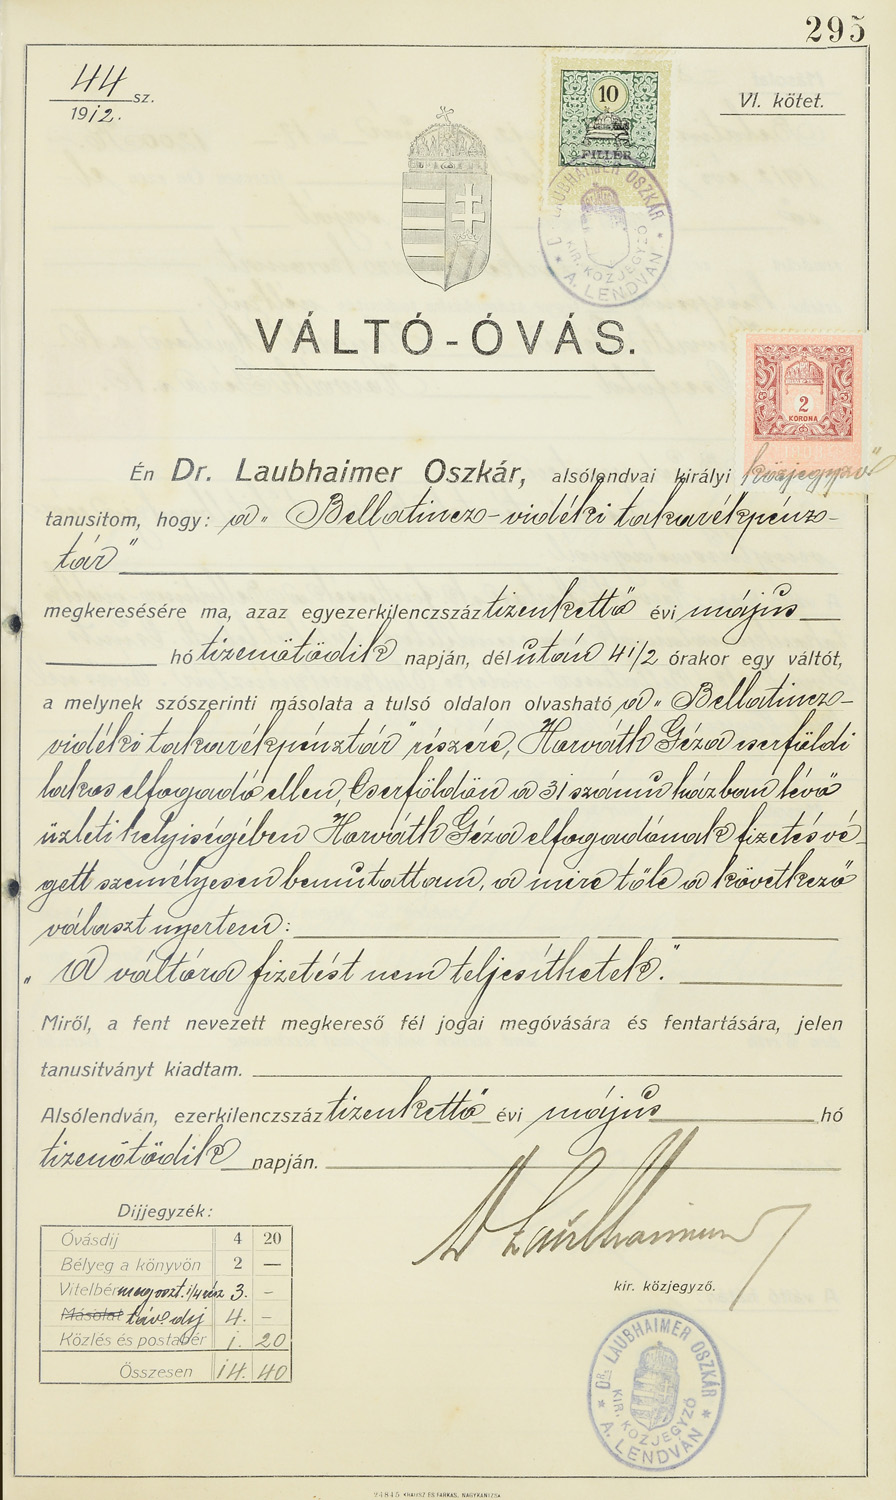 295
44 sz.
1912.
VI. kötet.
10
FILLÉR
Dr. LAUBHAIMER OSZKÁR
KIR. KÖZJEGYZŐ
* A. LENDVÁN *
VÁLTÓ-ÓVÁS.
2
KORONA
Én Dr. Laubhaimer Oszkár, alsólendvai királyi közjegyző
tanusitom, hogy: a „Bellatincz-vidéki takarékpénz-
tár"
megkeresésére ma, azaz egyezerkilenczszáz tizenkettő évi május
hó tizenötödik napján, délután 4 1/2 órakor egy váltót,
a melynek szószerinti másolata a tulsó oldalon olvasható a „Bellatincz-
vidéki takarékpénztár" részére, Horváth Géza cserföldi
lakos elfogadó ellen, Cserföldön a 31 számu házban lévő
üzleti helyiségében Horváth Géza elfogadónak fizetés vé-
gett személyesen bemutattam, a mire tőle a következő
választ nyertem:
„A váltóra fizetést nem teljesíthetek."
Miről, a fent nevezett megkereső fél jogai megóvására és fentartására, jelen
tanusitványt kiadtam.
Alsólendván, ezerkilenczszáz tizenkettő évi május hó
tizenötödik napján.
Dr Laubhaimer
kir. közjegyző.
Dijjegyzék:
Óvásdij 4 20
Bélyeg a könyvön 2 —
Vitelbér megoszt. 1/4 rész 3. -
Másolat táv. dij 4. -
Közlés és postabér 1. 20
Összesen 14. 40
DR. LAUBHAIMER OSZKÁR
KIR. KÖZJEGYZŐ
* A. LENDVÁN *
24845 KRAUSZ ÉS FARKAS, NAGYKANIZSA